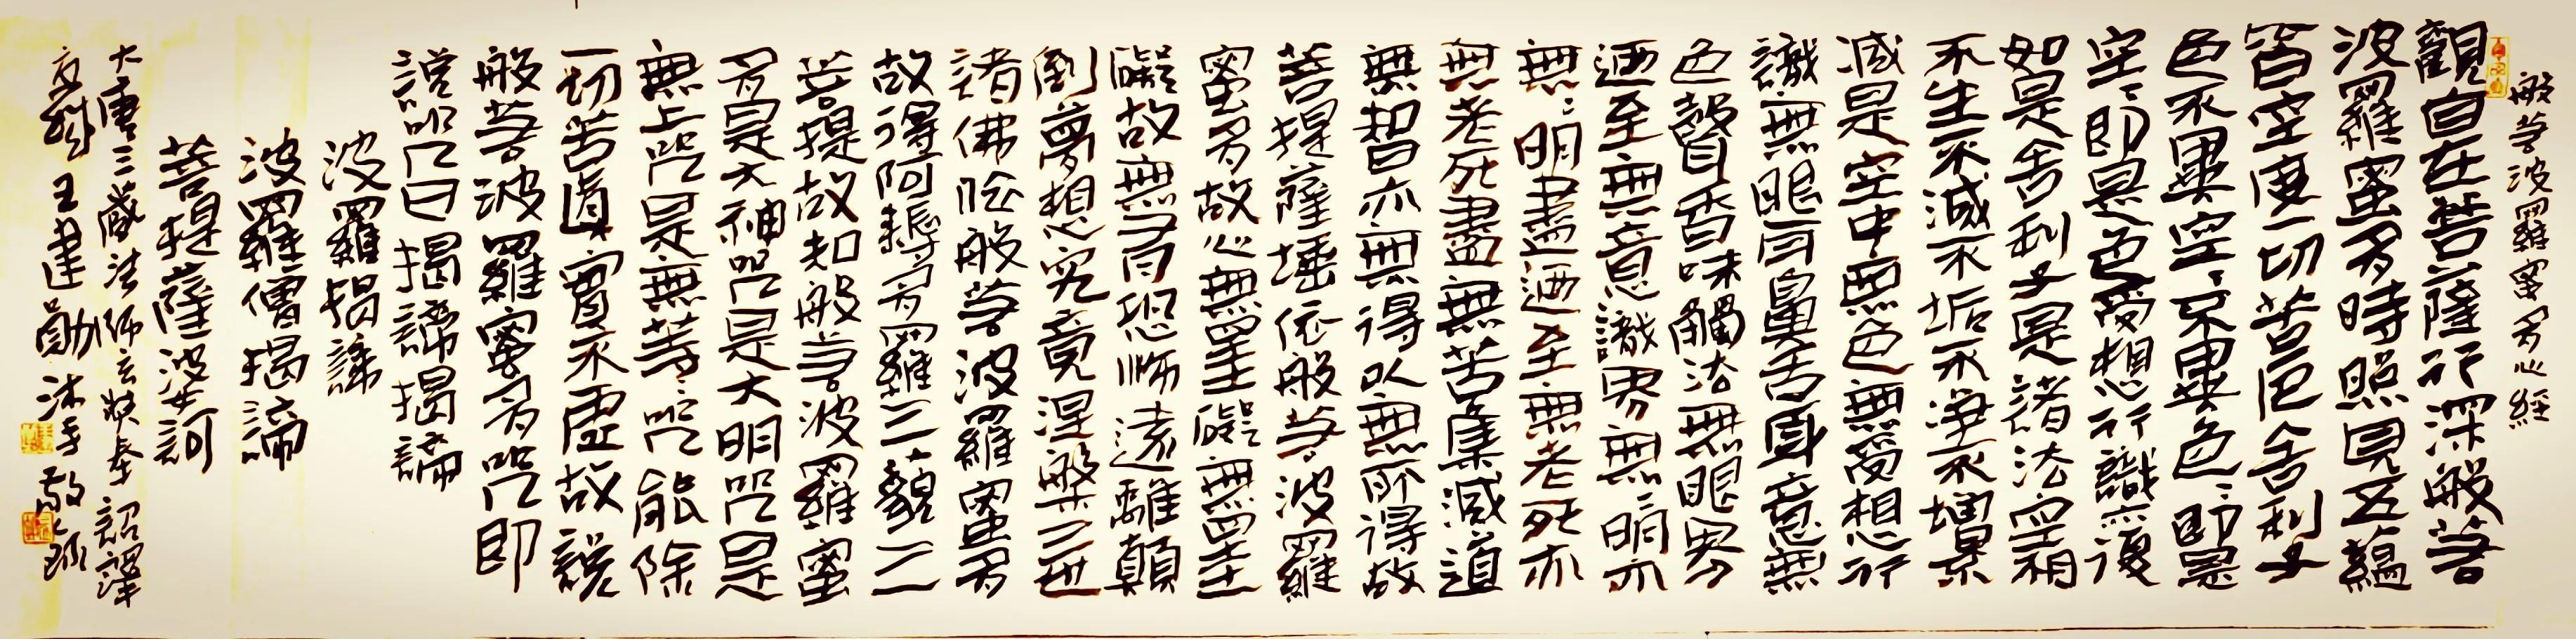 般若波羅蜜多心経
觀自在菩薩行深般若
波羅蜜多時照見五蘊
皆空度一切苦厄舍利子
色不異空〻不異色〻即是
空〻即是色受想行識亦復
如是舍利子是諸法空相
不生不滅不垢不淨不增
減是空中無色無受想行
識無眼耳鼻舌身意無
色聲香味觸法無眼界
迺至無意識界無〻明亦
無〻明盡迺至無老死亦
無老死盡無苦集滅道
無智亦無得以無所得故
菩提薩埵依般若波羅
蜜多故心無罣礙無罣
礙故無有恐怖遠離顛
倒夢想究竟涅槃三世
諸佛依般若波羅蜜多
故得阿耨多羅三藐三
菩提故知般若波羅蜜
多是大神咒是大明咒是
無上咒是無等〻咒能除
一切苦真實不虛故說
般若波羅蜜多咒即
說咒曰揭諦揭諦
波羅揭諦
波羅僧揭諦
菩提薩婆訶
大唐三藏法師玄奘奉詔譯
王建勛沐手敬